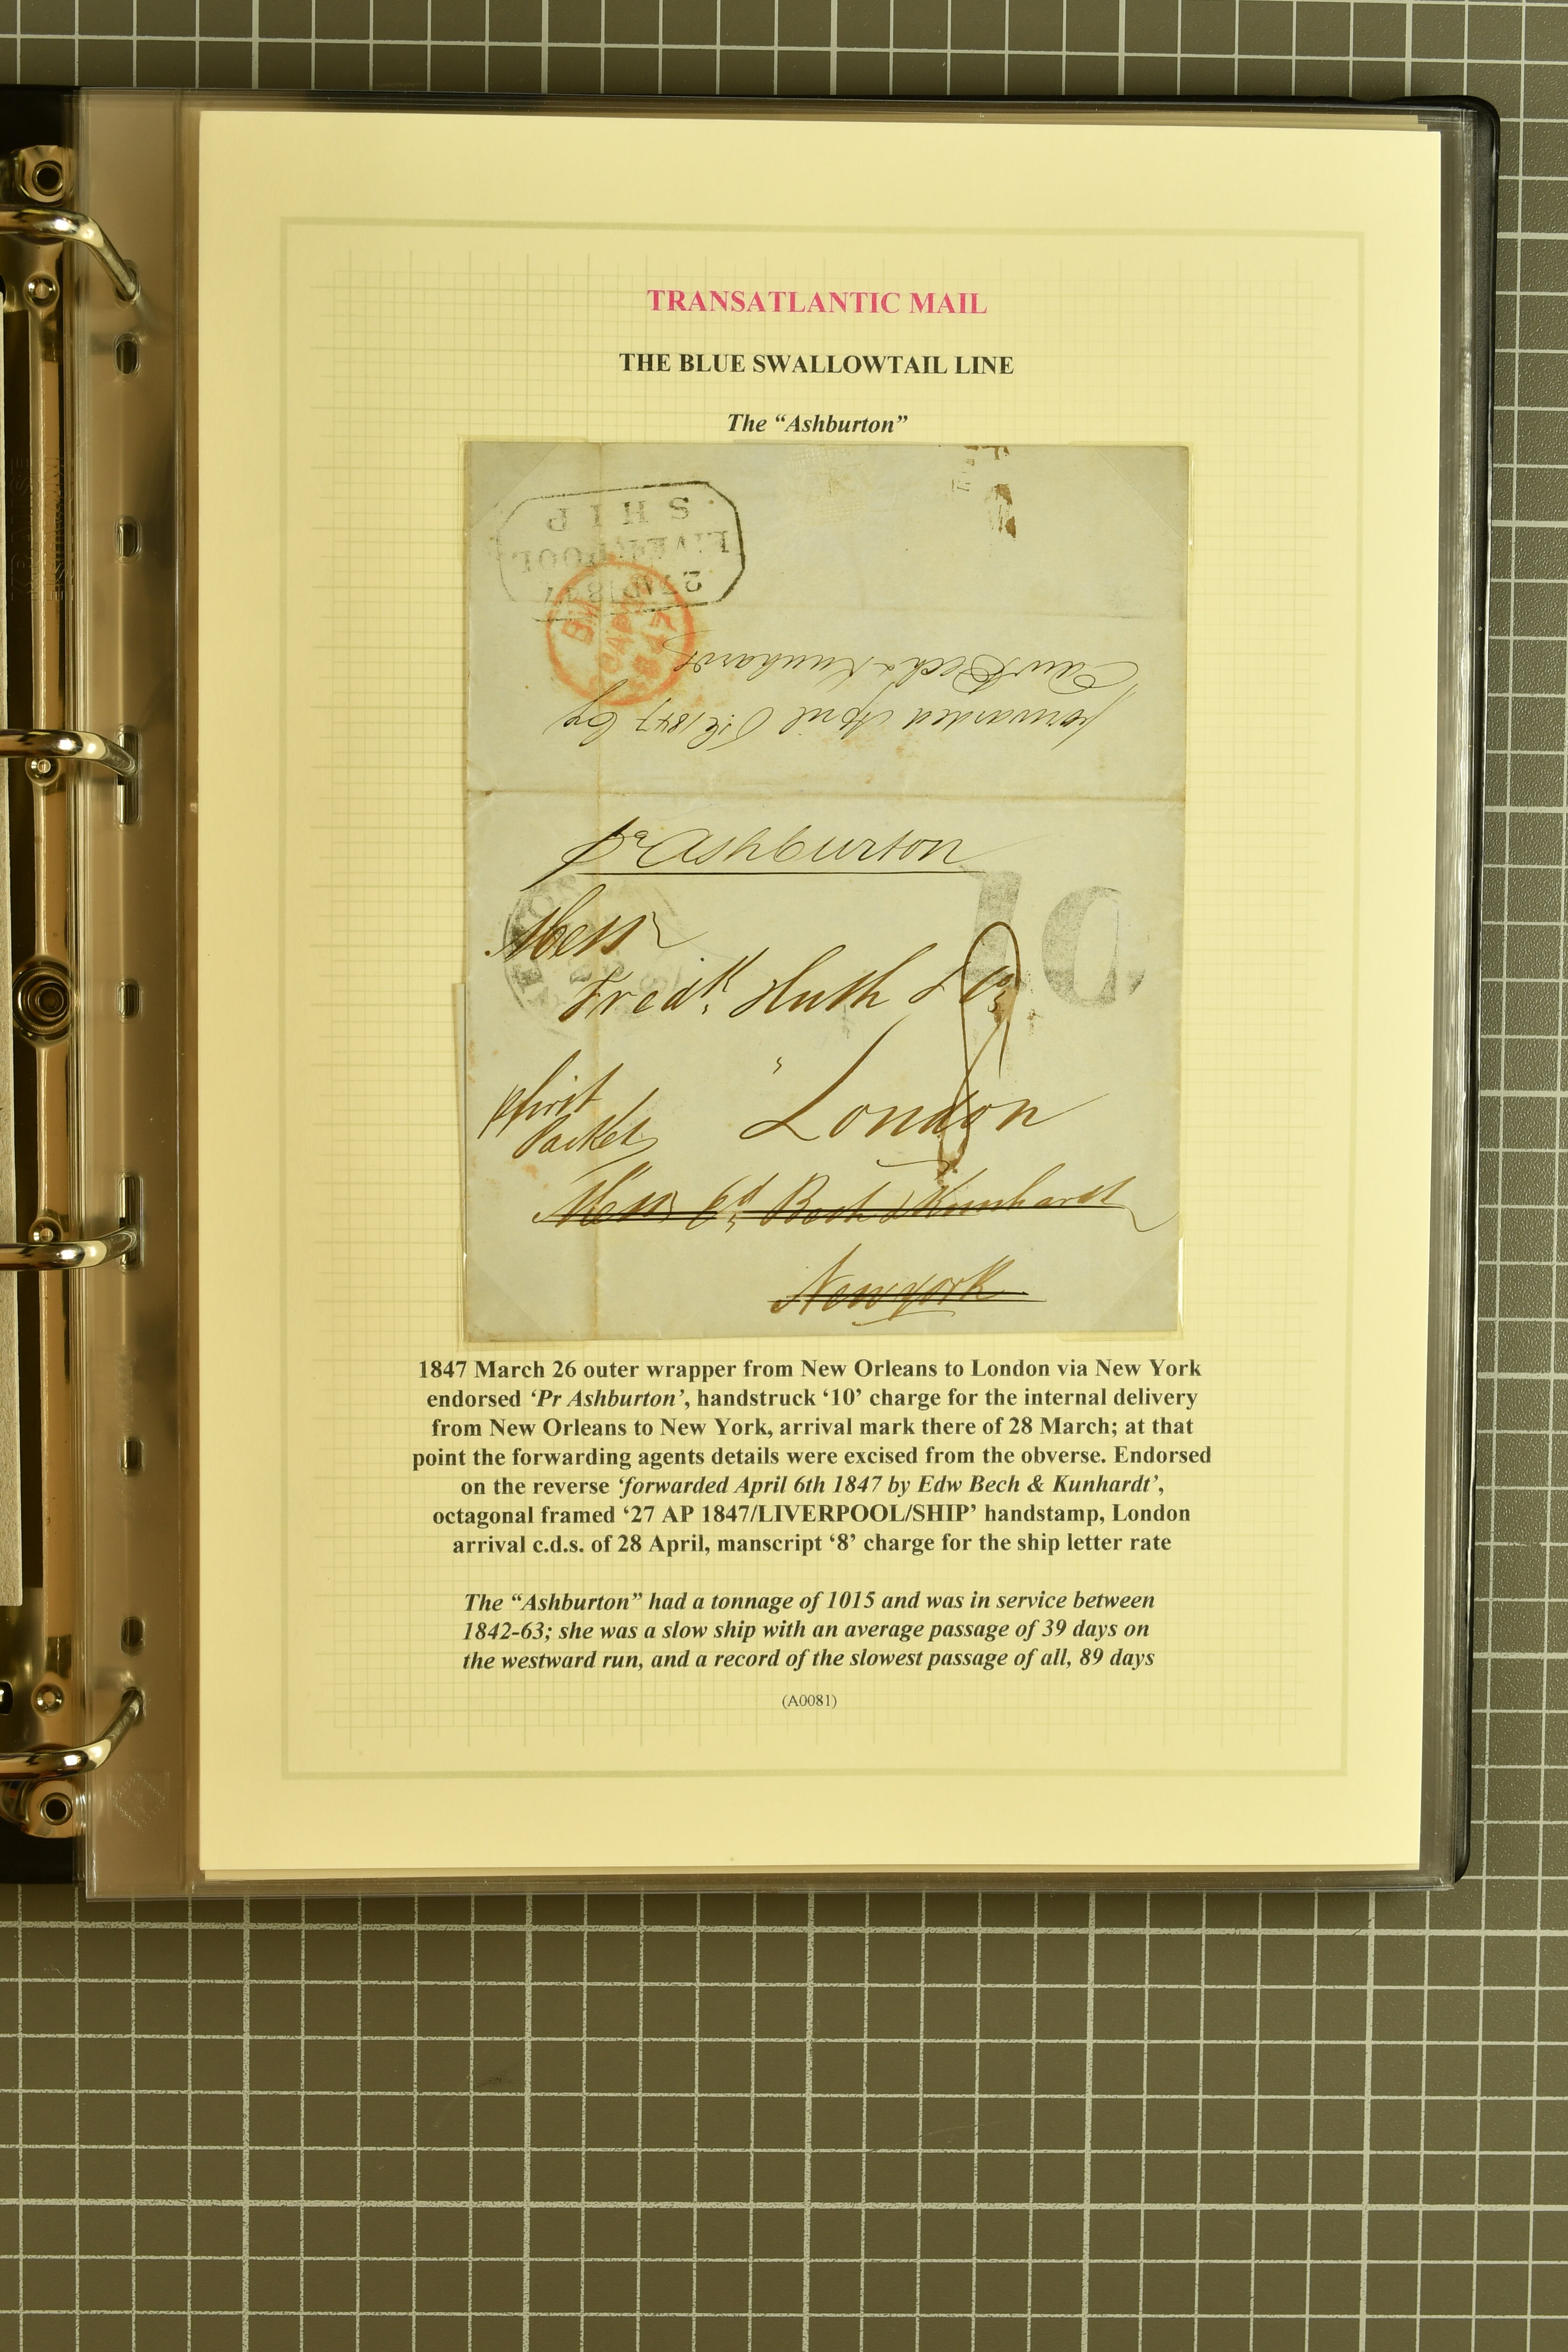 TRANSATLANTIC MAIL
THE BLUE SWALLOWTAIL LINE
The “Ashburton”
SHIP
LIVERPOOL
27 AP 1847
forwarded April 6th 1847 by
Edw Bech & Kunhardt
pr Ashburton
10
Messr
Fredk. Huth & Co
8
London
p first
Packet
Messrs Ed. Bech & Kunhardt
Newyork
1847 March 26 outer wrapper from New Orleans to London via New York
endorsed ‘Pr Ashburton’, handstruck ‘10’ charge for the internal delivery
from New Orleans to New York, arrival mark there of 28 March; at that
point the forwarding agents details were excised from the obverse. Endorsed
on the reverse ‘forwarded April 6th 1847 by Edw Bech & Kunhardt’,
octagonal framed ‘27 AP 1847/LIVERPOOL/SHIP’ handstamp, London
arrival c.d.s. of 28 April, manscript ‘8’ charge for the ship letter rate
The “Ashburton” had a tonnage of 1015 and was in service between
1842-63; she was a slow ship with an average passage of 39 days on
the westward run, and a record of the slowest passage of all, 89 days
(A0081)